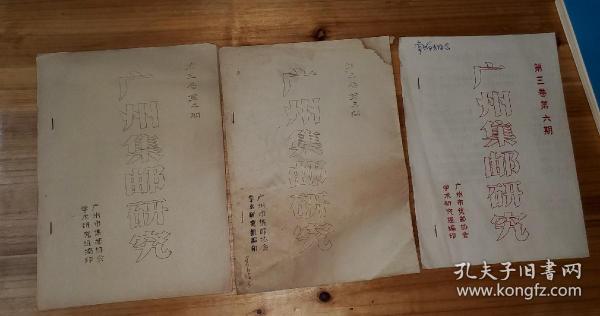 广州集邮研究
第三卷第二期
广州市集邮协会
学术研究组编印
广州集邮研究
第三卷第三期
广州市集邮协会
学术研究组编印
广州集邮研究
第三卷第六期
广州市集邮协会
学术研究组编印
孔夫子旧书网
www.kongfz.com